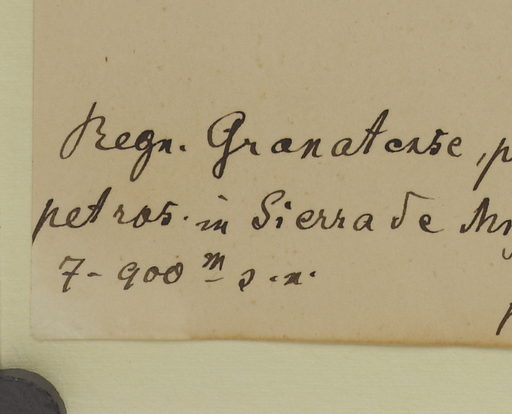 Regn. Granatense, p
petros. in Sierra de
7-900 m s.n.